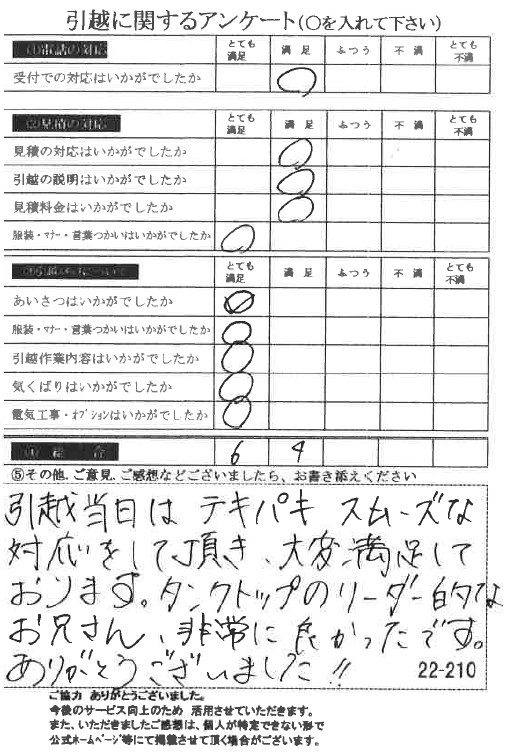 引越に関するアンケート(○を入れて下さい)
①電話の対応 とても満足 満足 ふつう 不満 とても不満
受付での対応はいかがでしたか
②見積の対応 とても満足 満足 ふつう 不満 とても不満
見積の対応はいかがでしたか
引越の説明はいかがでしたか
見積料金はいかがでしたか
服装・マナー・言葉つかいはいかがでしたか
とても満足 満足 ふつう 不満 とても不満
あいさつはいかがでしたか
服装・マナー・言葉つかいはいかがでしたか
引越作業内容はいかがでしたか
気くばりはいかがでしたか
電気工事・オプションはいかがでしたか
④総合 6 4
⑤その他、ご意見、ご感想などございましたら、お書き添えください
引越当日は テキパキ スムーズな
対応をして頂き、大変満足して
おります。タンクトップのリーダー的な
お兄さん、非常に良かったです。
ありがとうございました!!
22-210
ご協力 ありがとうございました。
今後のサービス向上のため 活用させていただきます。
また、いただきましたご感想は、個人が特定できない形で
公式ホームページ等にて掲載させて頂く場合がございます。